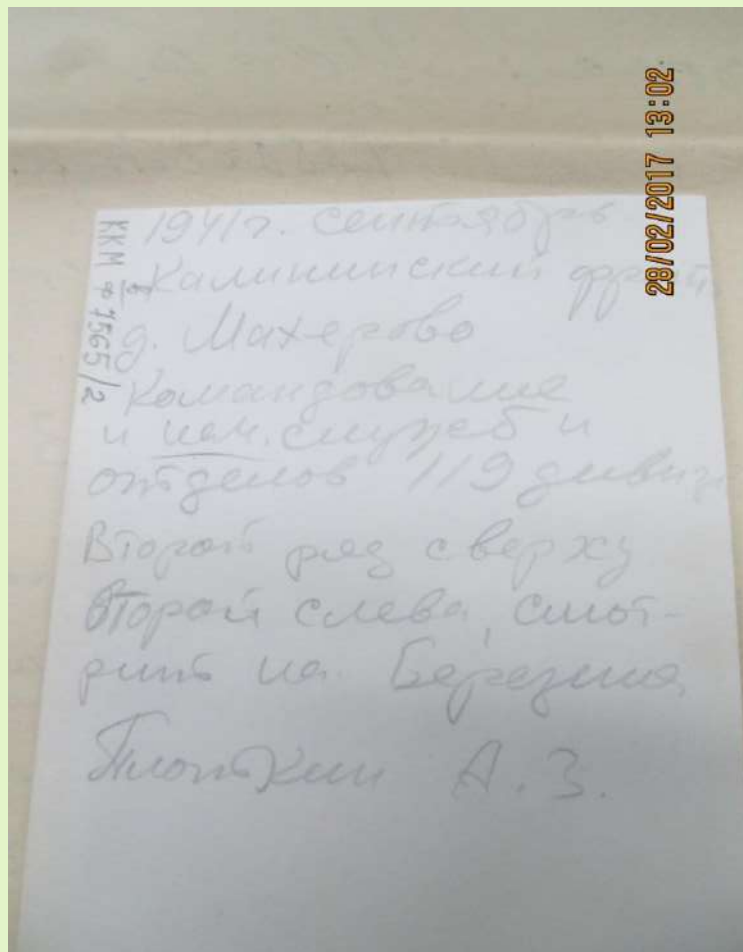 28/02/2017 13:02
ККМ
7565/2
1941г. сентябрь
Калининский фронт
д. Махерово
Командование
и нач. служеб и
отделов 119 дивиз
Второй ряд сверху
второй слева, смот-
рит на Березина
Плоткин А.З.